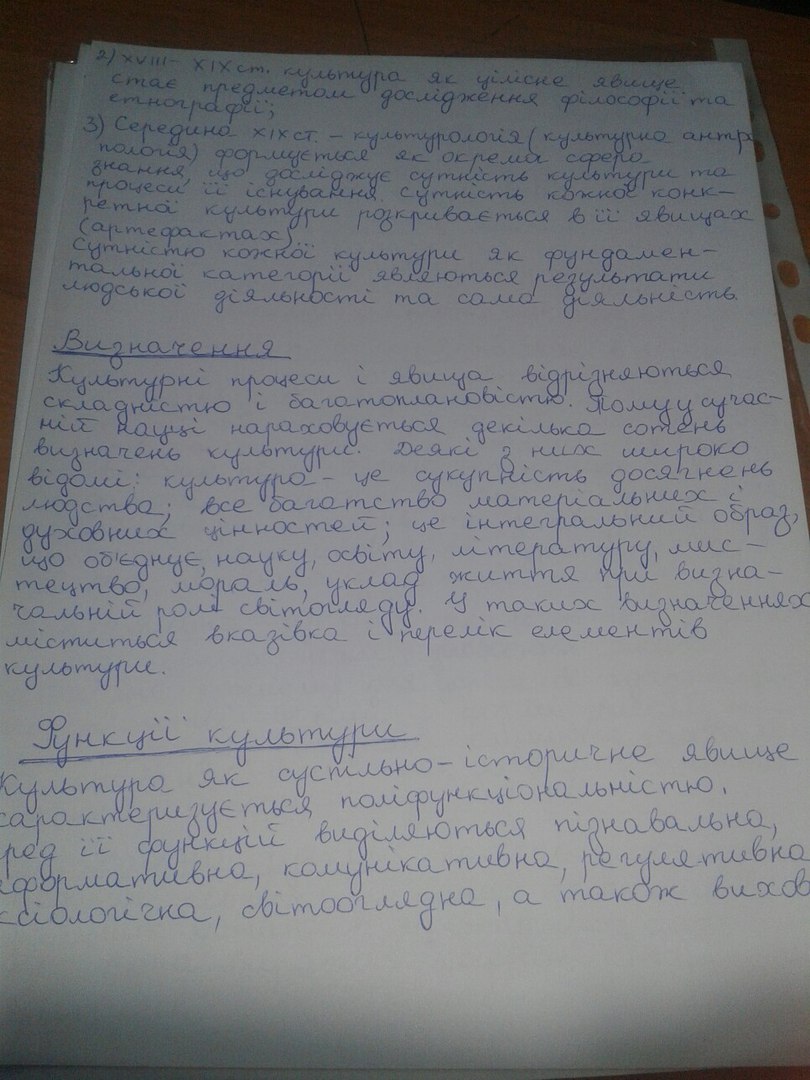 2) XVIII- XIX ст. культура як цілісне явище
стає предметом дослідження філософії та
етнографії;
3) Середина XIX ст. - культурологія (культурна антро
пологія) формується як окрема сфера
знання, що досліджує сутність культури та
процеси її існування. сутність кожної конк-
ретної культури розкривається в її явищах
(артефактах)
Сутністю кожної культури як фундамен-
тальної категорії являються результати
людської діяльності та сама діяльність.
Визначення
Культурні процеси і явища відрізняються
складністю і багатоплановістю. Тому у сучас-
ній науці нараховується декілька сотень
визначень культури. Деякі з них широко
відомі: культура - це сукупність досягнень
людства; все багатство матеріальних і
духовних цінностей; це інтегральний образ,
що об'єднує науку, освіту, літературу, мис-
тецтво, мораль, уклад життя при визна-
чальній ролі світогляду. У таких визначеннях
міститься вказівка і перелік елементів
культури.
Функції культури
Культура як сустільно-історичне явище
характеризується поліфункціональністю.
ред її функцій виділяються пізнавальна,
формативна, комунікативна, регулятивна
ксіологічна, світооглядна, а також вихов